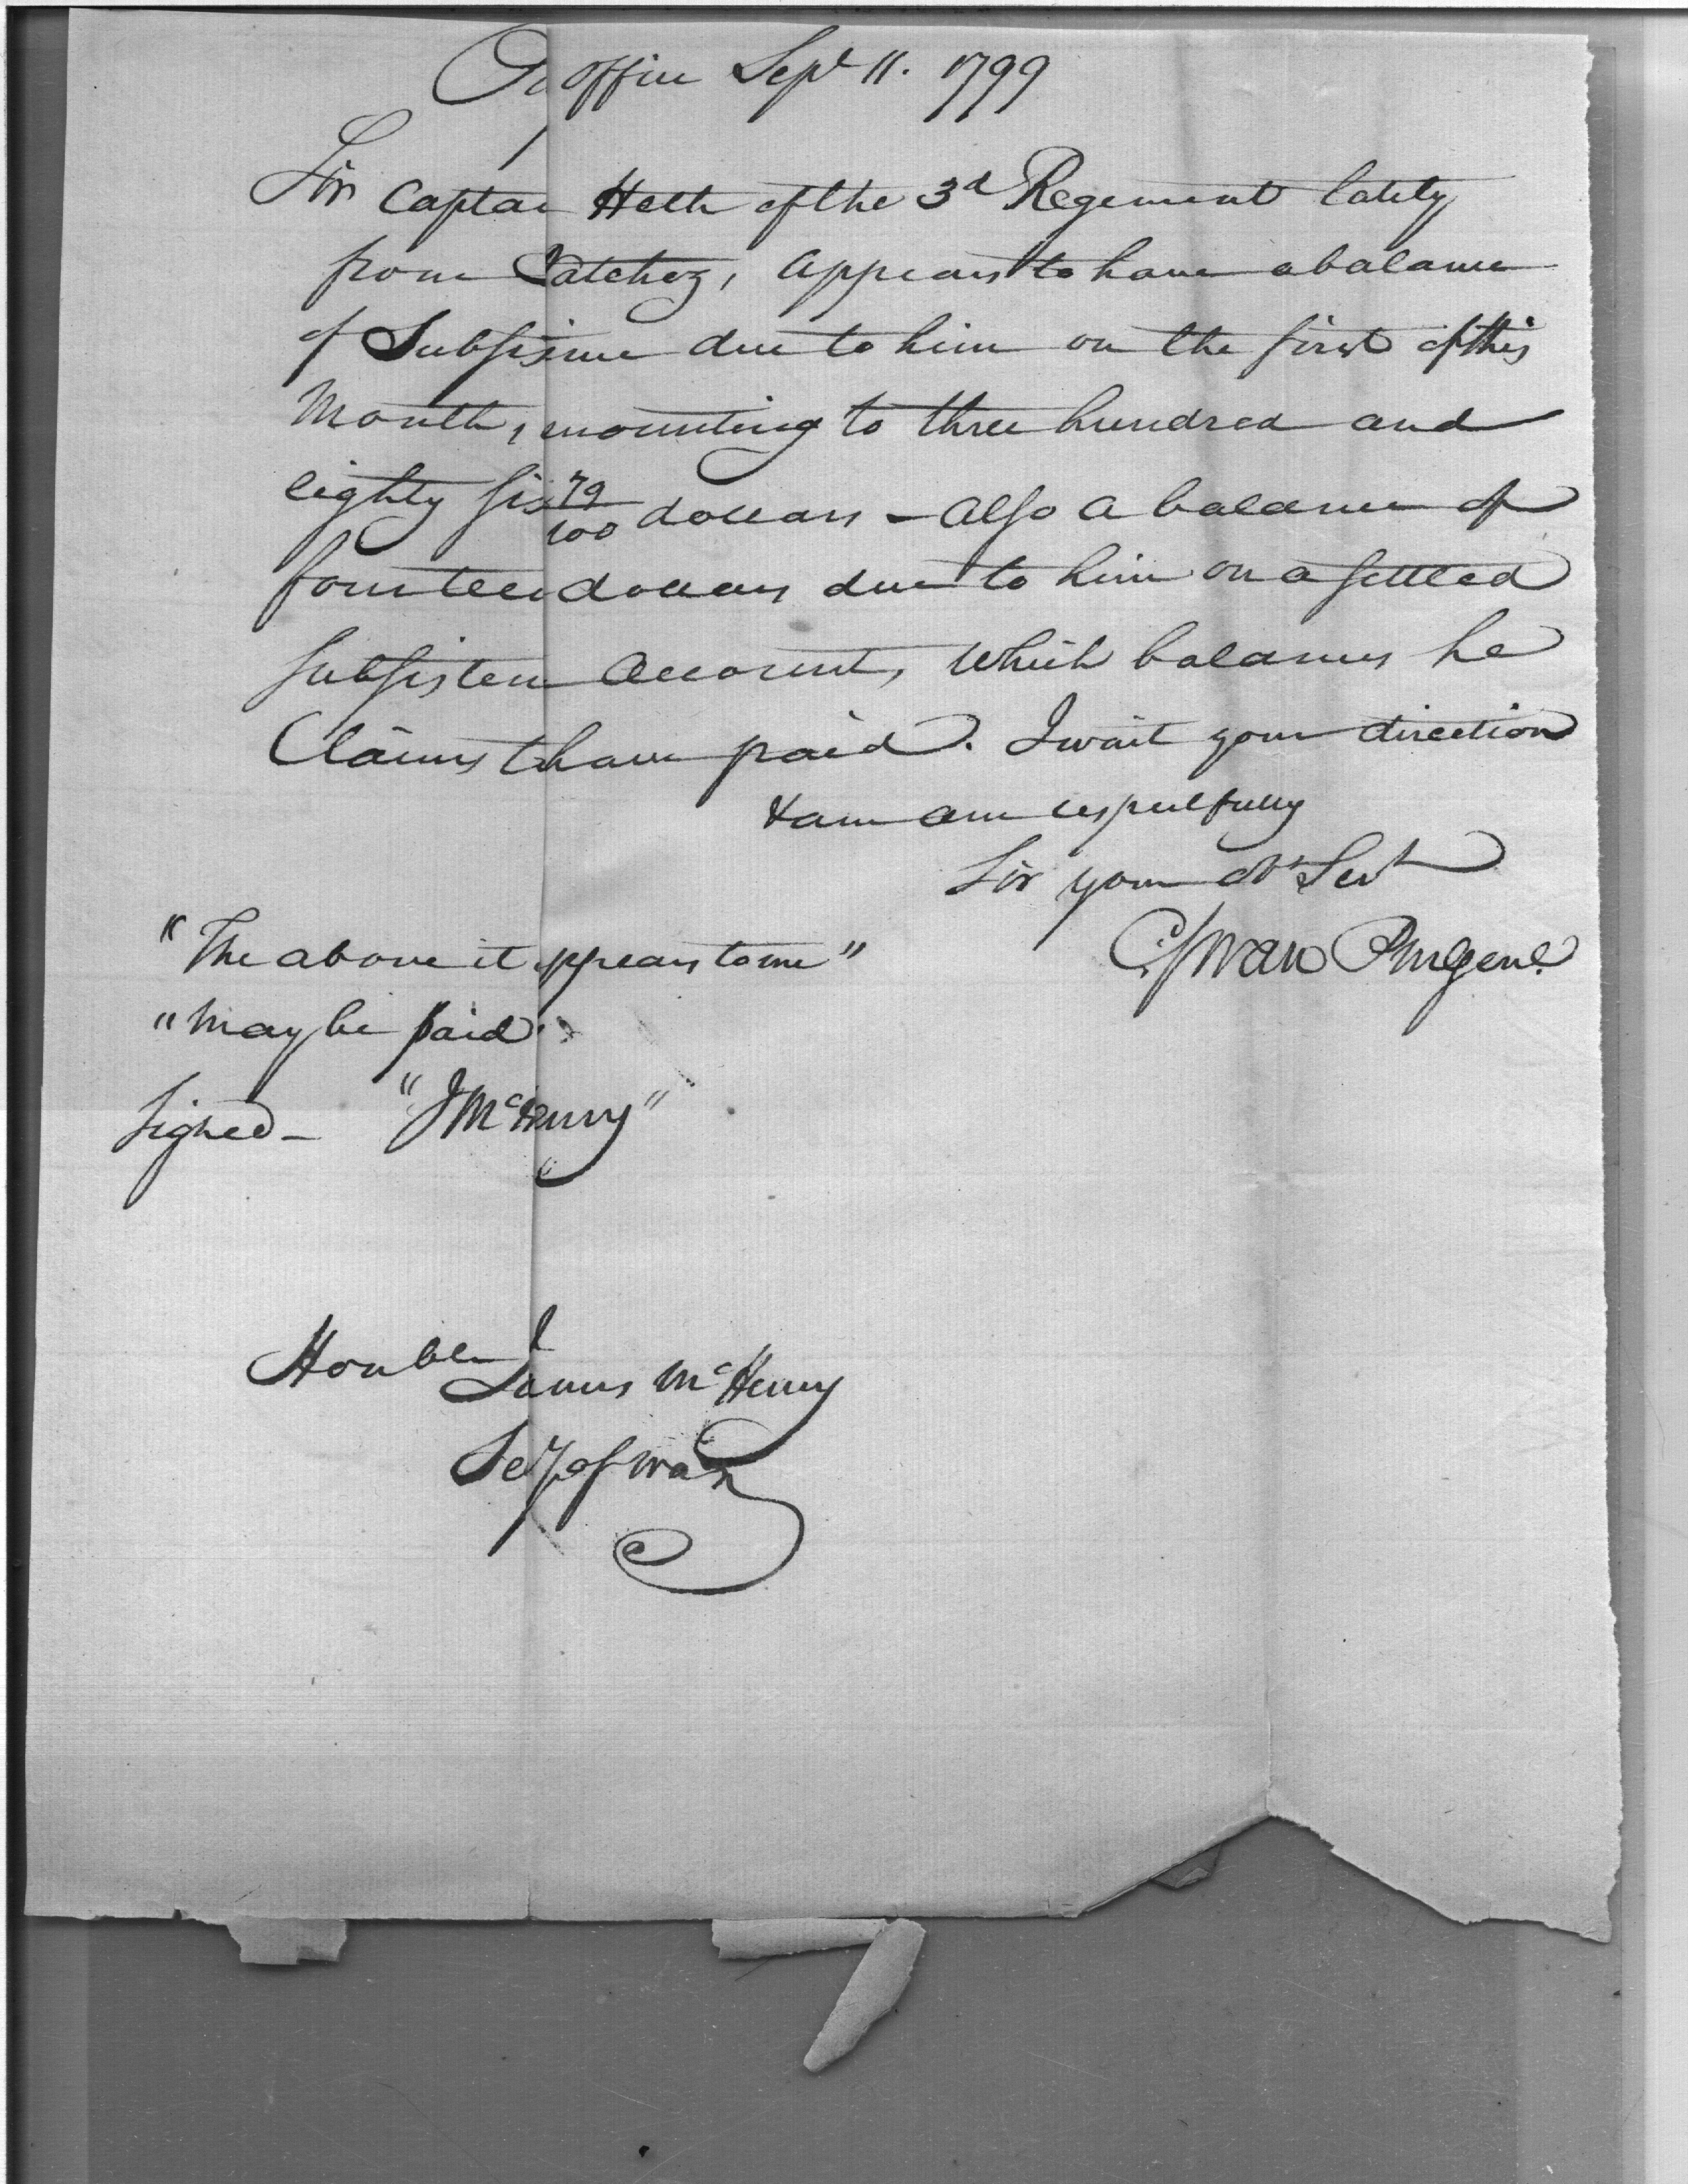 Pay Office Sept 11. 1799
Sir Captai Heth of the 3d Regement lately
from Natchez, appears to have a balance
of Subsisince due to him on the first of this
Month, mounting to three hundred and
eighty six 79/100 dollars - also a balance of
fourteen dollars due to him on a settled
subsisten account, which balances he
Claims t have paid. I wait your direction
& am am respectfully
Sir your obt Sert
C Swan PMGenl.
"The above it appears to me"
"may be paid"
Signed - "J McHenry"
Honble
James McHenry
Secy of War